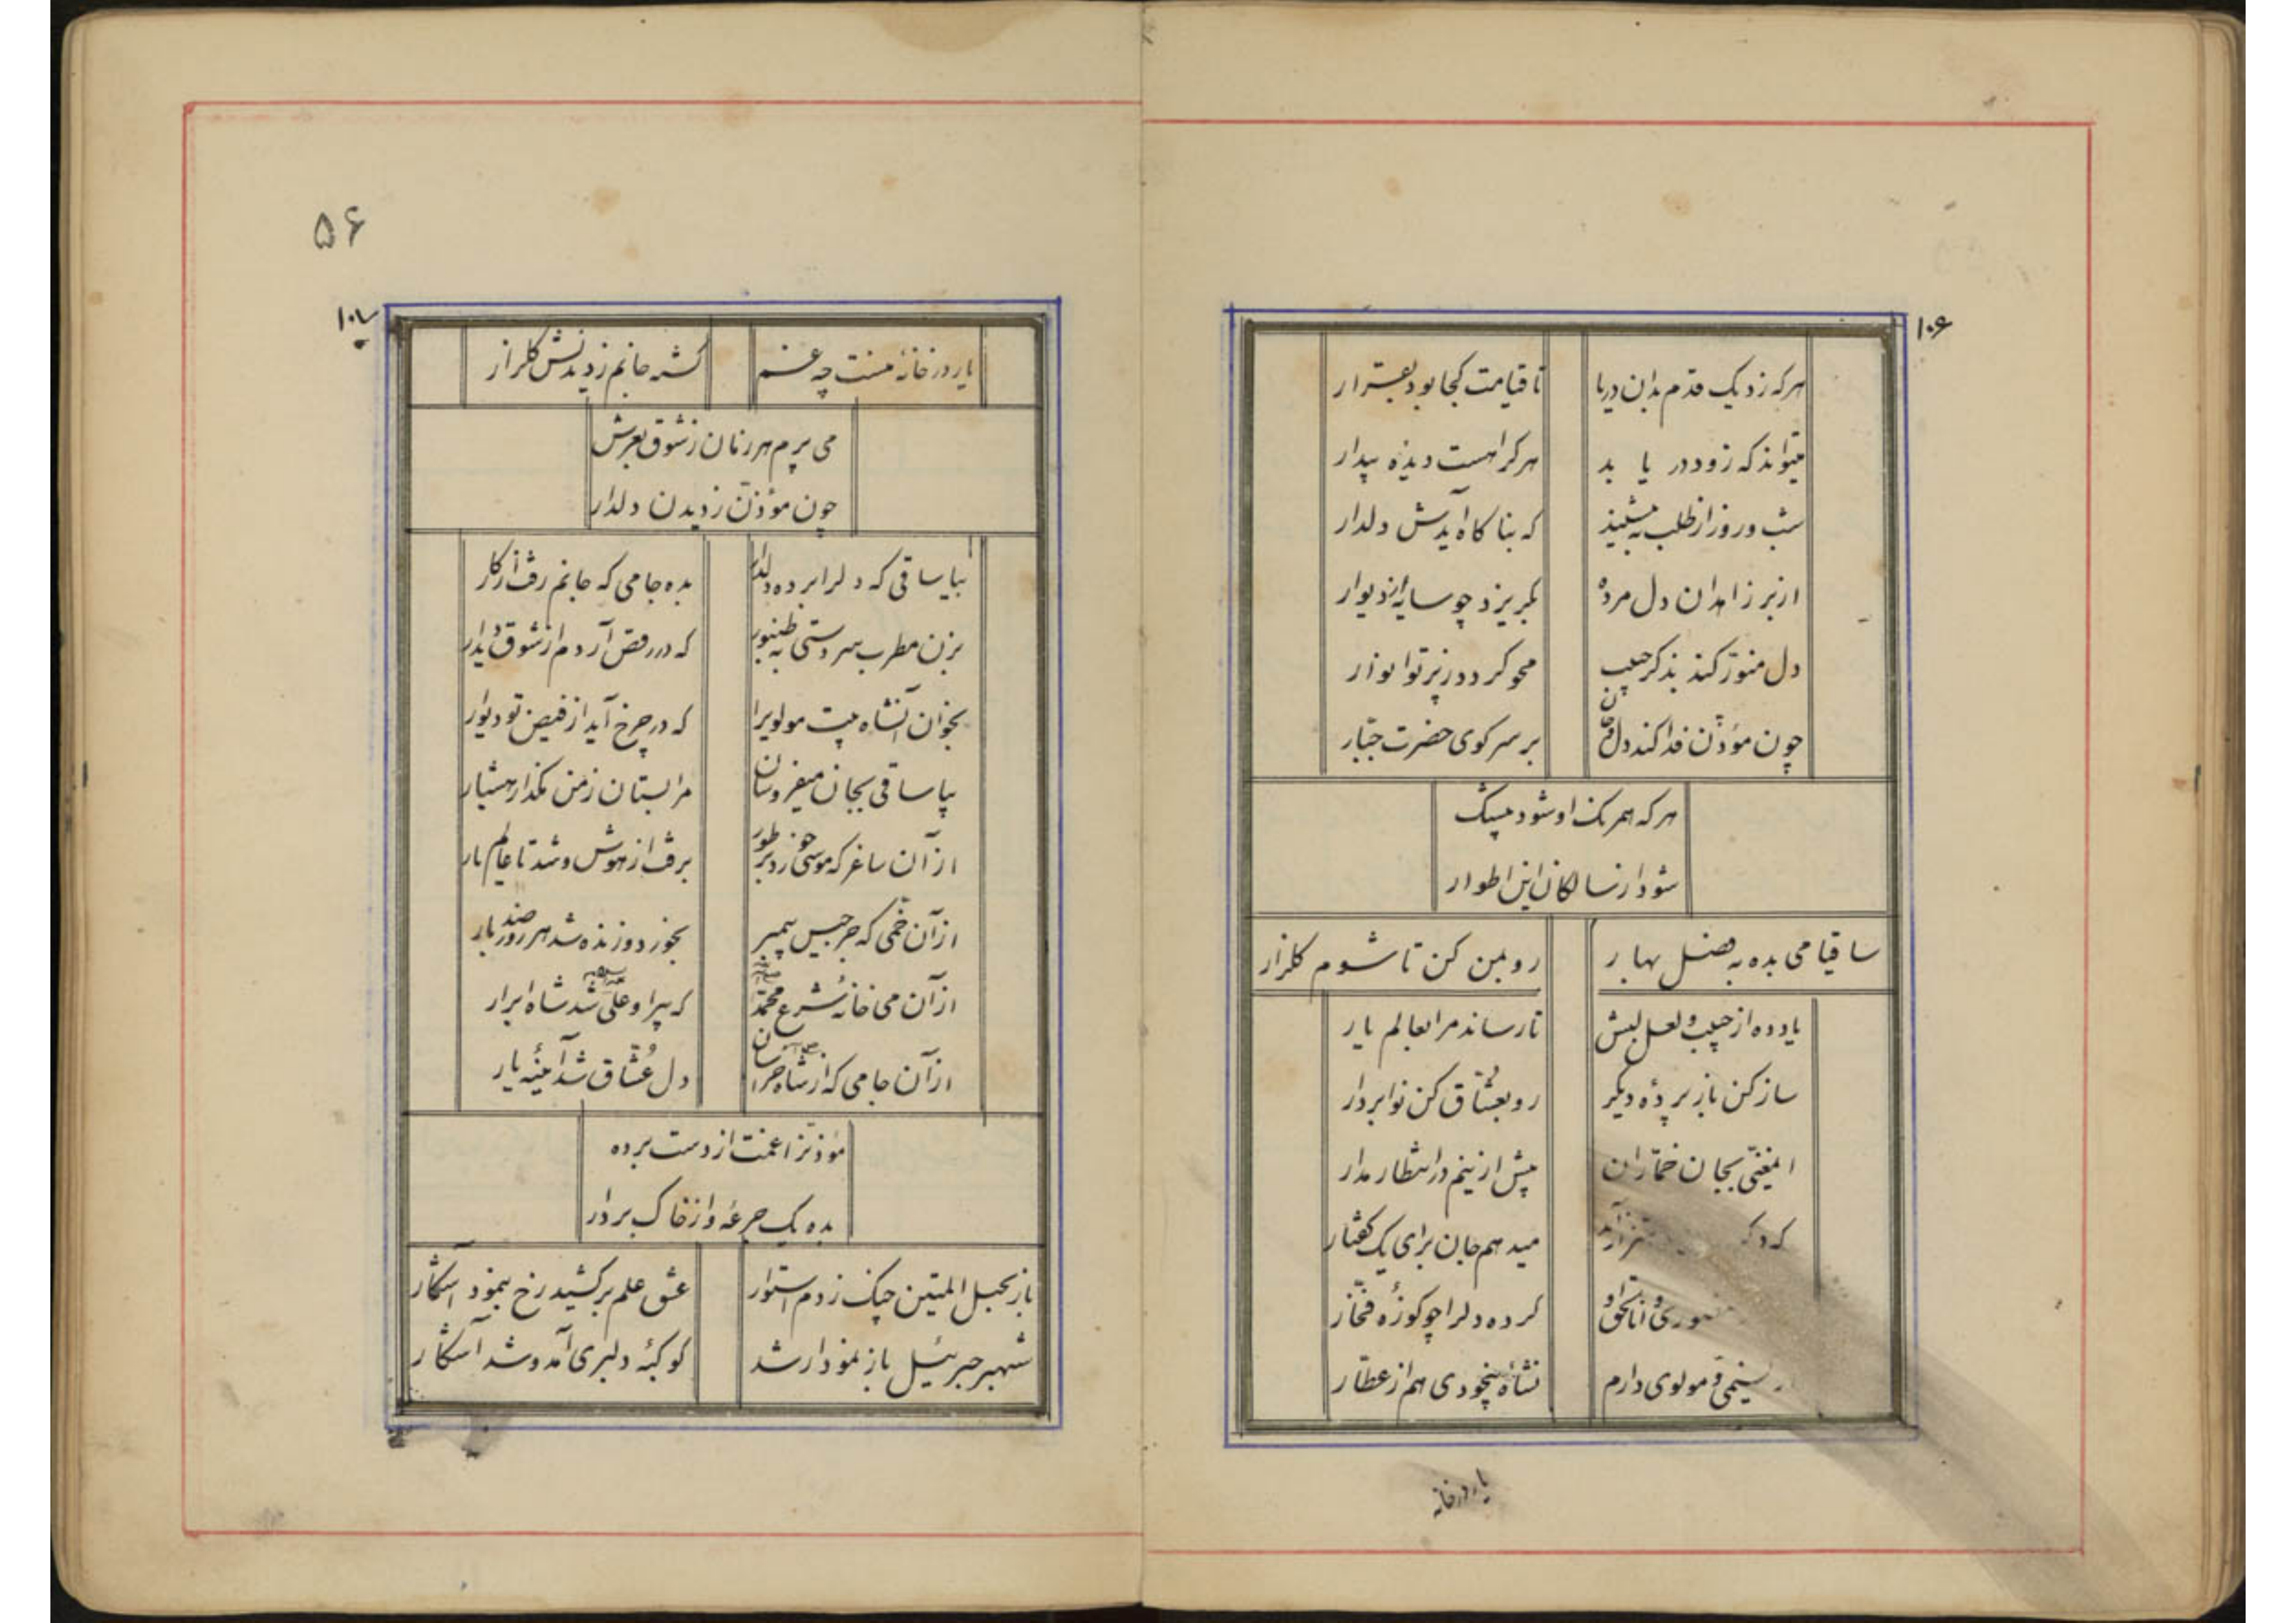 ۱۰۶
هر که زد یک قدم بدان دریا تا قیامت کجا بود بقرار
میتواند که زود در یا بد هر کرا هست دیده بیدار
شب و روز از طلب به ننشیند که بناکاه آیدش دلدار
از بر زاهدان دل مرده بکریزد چو سایه از دیوار
دل منور کند بذکر حبیب محو کردد ز پرتو انوار
چون مؤذن فدا کند دل بر سر کوی حضرت جبّار
هر که همرنک او شود بیشک
شود از سالکان این اطوار
ساقیا می بده به فصل بهار رو بمن کن تا شوم کلزار
یاد ده از حبیب و لعل لبش تا رساند مرا بعالم یار
ساز کن باز پرده دیکر رو بعشّاق کن نوا بردار
ای مغنّی بجان خمّاران پیش ازینم در انتظار مدار
که میدهم جان برای یک کفتار
منصوری و اناالحق او کرده دلرا چو کوزه فخّار
نسیمی و مولوی دارم نشأه بیخودی هم از عطّار
یار در خانه
۵۶
۱۰۷
یار در خانهٔ منست چه غم کشته جانم ز دیدنش کلزار
می پرم هر زمان ز شوق بعرش
چون مؤذّن ز دیدن دلدار
بیا ساقی که دلرا برده دلدار بده جامی که جانم رفت از کار
بزن مطرب سر دستی به طنبور که در رقص آردم از شوق دیدار
بخوان آنشاه بیت مولویرا که در چرخ آید از فیض تو دیوار
بیا ساقی بجان میفروشان مرا بستان ز من مکذار هشیار
از آن ساغر که موسی خورد بر طور برفت از هوش و شد تا عالم یار
از آن خمّی که جرجیس پیمبر بخورد و زنده شد هر روز صد بار
از آن می خانهٔ شرع محمّد که پیر او علی شد شاه ابرار
از آن جامی که از شاه خراسان دل عشّاق شد آیینهٔ یار
مؤذنرا غمت از دست برده
بده یک جرعه و از خاک بردار
باز بحبل المتین چنک زدم استوار عشق علم برکشید رخ بنمود آشکار
شهپر جبرئیل باز نمودار شد کوکبه دلبری آمد و شد آشکار